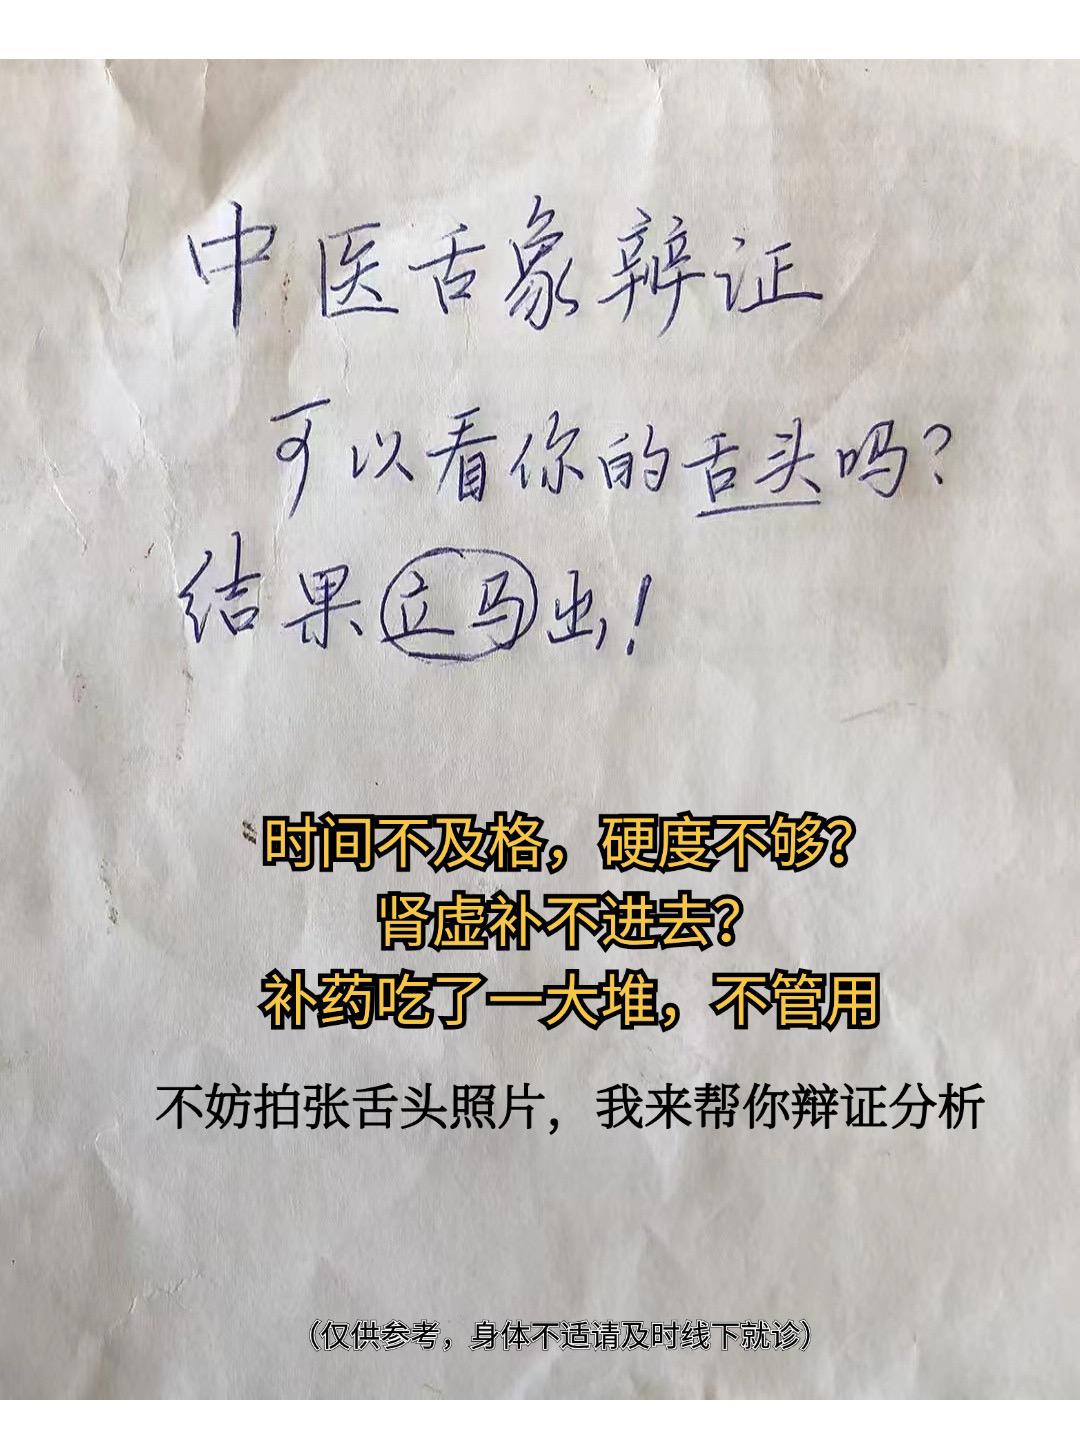 中医舌象辨证
可以看你的舌头吗?
结果立马出!
时间不及格，硬度不够?
肾虚补不进去?
补药吃了一大堆，不管用
不妨拍张舌头照片，我来帮你辩证分析
（仅供参考，身体不适请及时线下就诊）